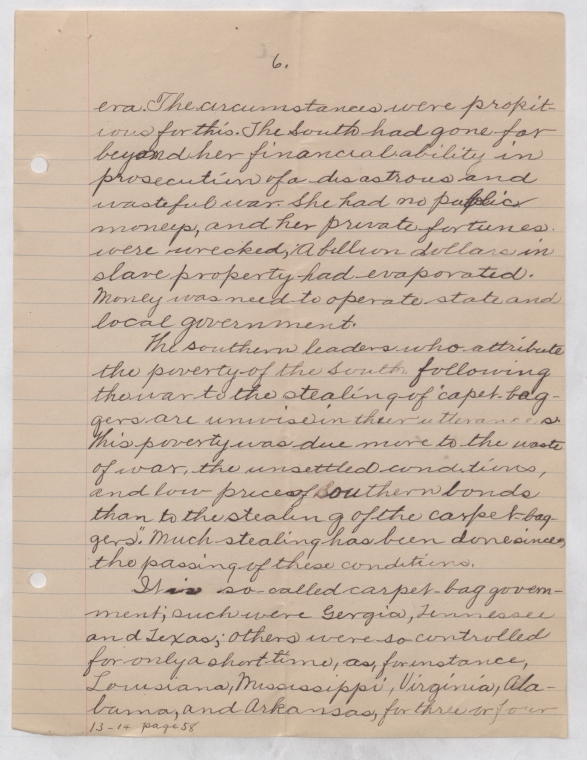 6.
era. The circumstances were propit-
ious for this. The South had gone far
beyond her financial ability in
prosecution of a disastrous and
wasteful war. She had no public
moneys, and her private fortunes
were wrecked, A billion dollars in
slave property had evaporated.
Money was need to operate state and
local government.
The southern leaders who attribute
the poverty of the South following
the war to the stealing of "capet-bag-
gers are unwise in their utterances.
This poverty was due more to the waste
of war, the unsettled conditions,
and low prices of Southern bonds
than to the stealing of the carpet-bag-
gers". Much stealing has been done since
the passing of these conditions.
It is so-called carpet-bag govern-
ment; such were Gergia, Tennessee
and Texas; others were so controlled
for only a short time, as, for instance,
Louisiana, Mississippi, Virginia, Ala-
bama, and Arkansas, for three or four
13-14 page 58